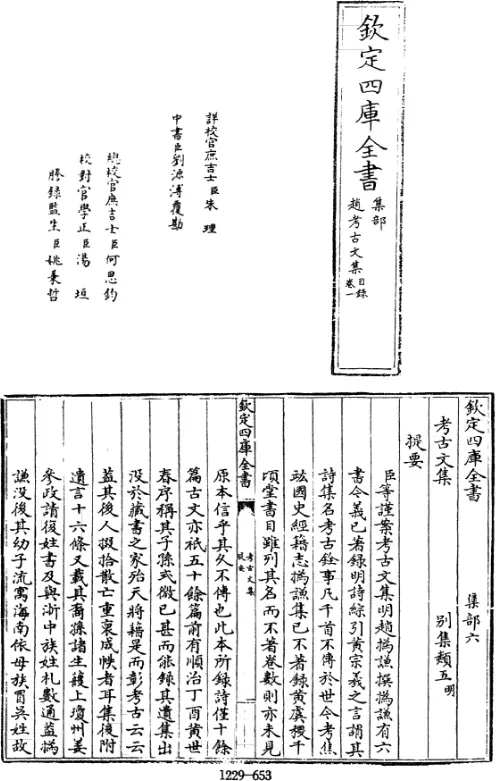 欽定四庫全書
集部
趙考古文集
目錄
卷一
詳校官庶吉士臣朱理
中書臣劉源溥覆勘
總校官庶吉士臣何思鈞
校對官學正臣湯垣
謄錄監生臣姚秉哲
欽定四庫全書 集部六
考古文集 別集類五明
提要
臣等謹案考古文集明趙撝謙撰撝謙有六
書本義已著錄明詩綜引黃宗羲之言謂其
詩集名考古餘事凡千首不傳於世今考焦
竑國史經籍志撝謙集已不著錄黃虞稷千
頃堂書目雖列其名而不著卷數則亦未見
欽定四庫全書
考古文集
提要
原本信乎其久不傳也此本所錄詩僅十餘
篇古文亦祇五十餘篇前有順治丁酉黃世
春序稱其子孫式微已甚而能錄其遺集出
沒於藏書之家殆天將藉是而彰考古云云
蓋其後人掇拾散亡重裒成帙者耳集後附
遺言十六條又載其裔孫諸生頀上瓊州姜
參政請復姓書及與浙中族姓札數通蓋撝
謙沒後其幼子流寓海南依母族冒吳姓故
1229—653